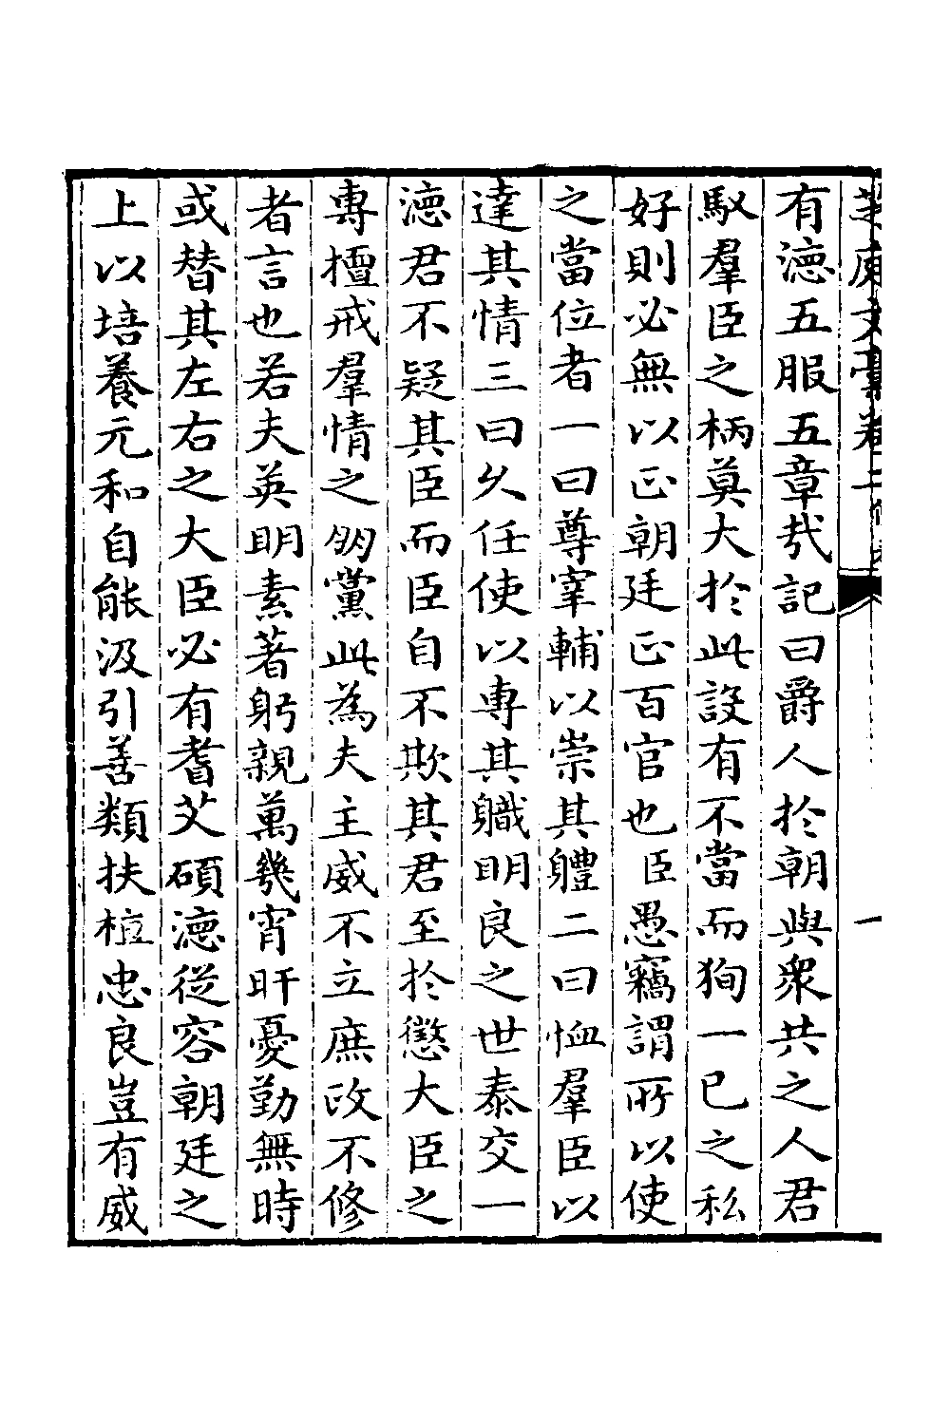 芝庭文藁卷二
一
有德五服五章哉記曰爵人於朝與衆共之人君
馭羣臣之柄莫大於此設有不當而狥一已之私
好則必無以正朝廷正百官也臣愚竊謂所以使
之當位者一曰尊宰輔以崇其軆二曰恤羣臣以
達其情三曰久任使以專其職明良之世泰交一
德君不疑其臣而臣自不欺其君至於懲大臣之
專擅戒羣情之朋黨此為夫主威不立庶政不修
者言也若夫英明素著躬親萬幾宵旰憂勤無時
或替其左右之大臣必有耆艾碩德從容朝廷之
上以培養元和自能汲引善類扶植忠良豈有威